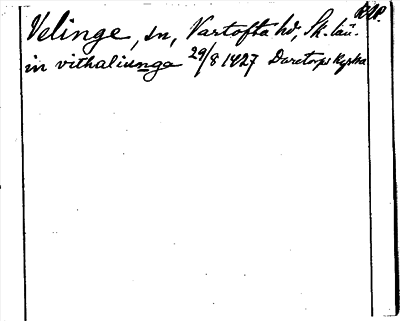 Velinge, sn, Vartofta hd, Sk. län.
in vithaliunga 29/8 1427 Daretorps Kyrka